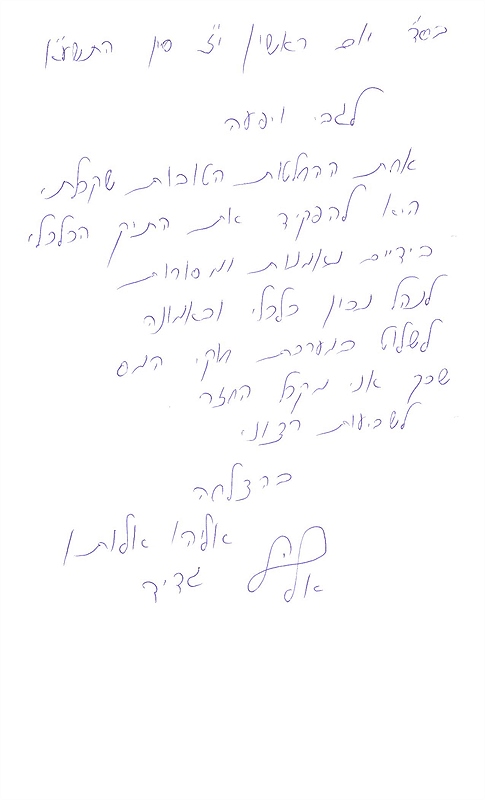 בס"ד יום ראשון י"ז סיון התשע"ו
לגבי ויפעה
אחת ההחלטות הטובות שקבלתי,
היא להפקיד את התיק הכלכלי
בידיים נאמנות ומסורות
לנהל נכון כלכלי ובאמונה
לשלוט במערכת חוקי המס
שכך אני מקבל החזר
לשביעות רצוני
בהצלחה
אליהו
גדיד